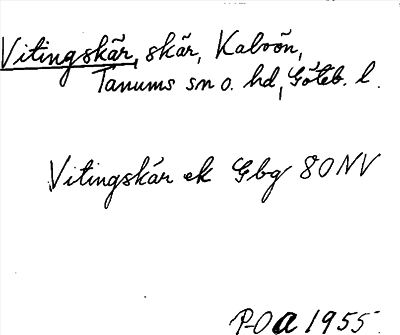 Vitingskär, skär, Kalvön,
Tanums sn o. hd, Göteb. l.
Vitingskär ek Gbg 80NV
P-O a 1955